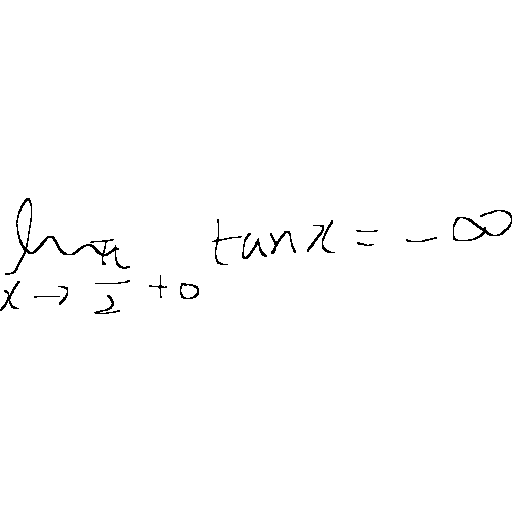 \lim_{x \to \frac{\pi}{2}+0} \tan x = -\infty